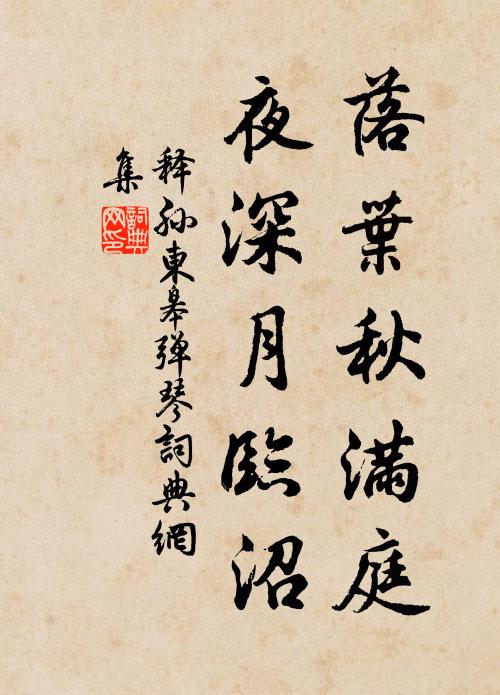 落葉秋滿庭
夜深月臨沼
释孙東皋弹琴詞典網
集
詞典網印